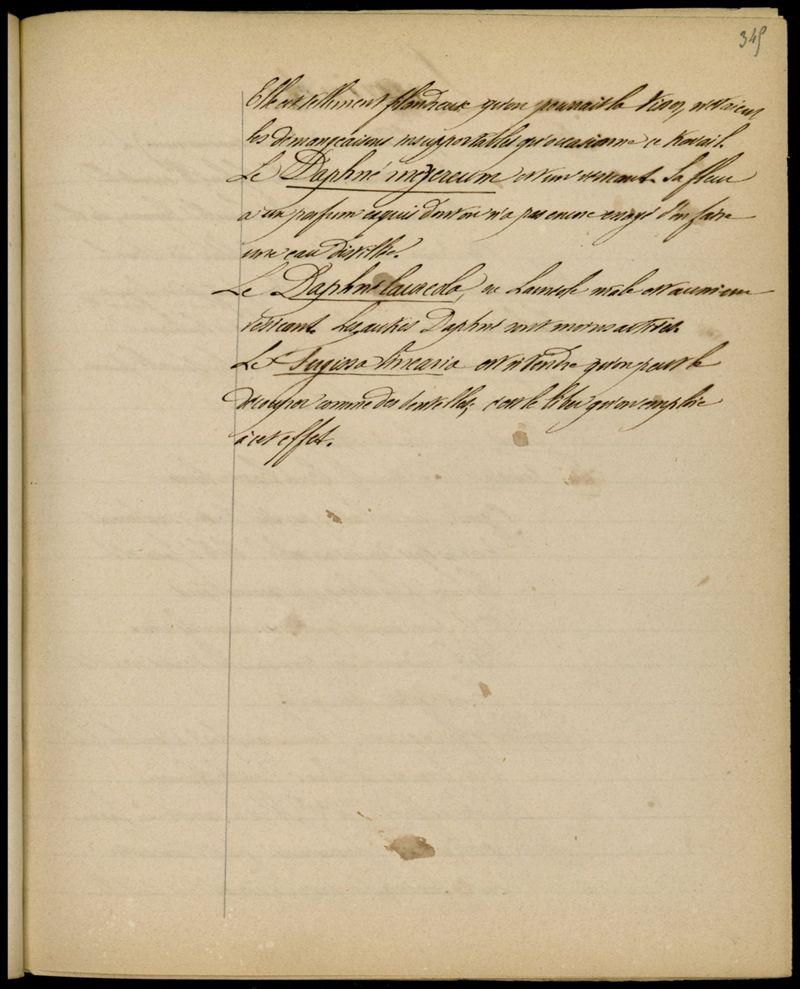 345
Elle est tellement filandreuse qu'on pourrait la tisser, n'étaient
les démangeaisons insupportables qu'occasionne ce travail.
Le Daphné mezereum est un vésicant. Sa fleur
a un parfum exquis dont on n'a pas encore essayé d'en faire
une eau distillée.
Le Daphné laureola, ou Lauréole mâle est aussi un
vésicant. Les autres Daphné sont moins actives.
Le linearia est si tendre qu'on peut le
découper comme des dentelles; c'est le liber qu'on emploie
à cet effet.